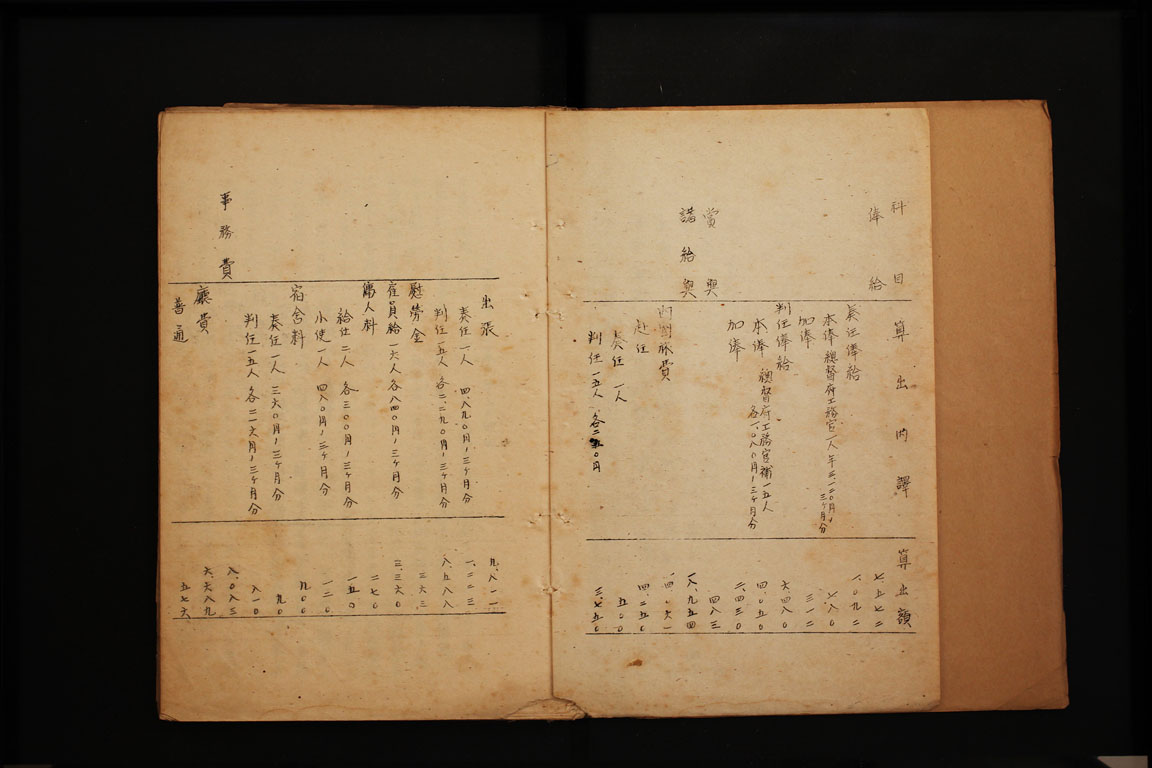 科目 算出內譯 算出額
俸給 七、五七二
奏任俸給 一、〇九二
本俸 總督府工務官一人年三、一二〇円ノ三ヶ月分 七八〇
加俸 三一二
判任俸給 六四八〇
本俸 總督府工務官補一五人各一、〇八〇円ノ三ヶ月分 四、〇五〇
加俸 二、四三〇
賞與 四八三
諸給與 一八、九五四
內國旅費
赴任 四、二五〇
奏任 一人 五〇〇
判任 一五人 各二五〇円 三、七五〇
出張 九、八一一
奏任 一人 四、八九〇円ノ三ヶ月分 一、二二三
判任 一五人 各二、二九〇円ノ三ヶ月分 八、五八八
慰勞金 三六三
雇員給 一六人 各八四〇円ノ三ヶ月分 三、三六〇
傭人料 二七〇
給仕 二人 各三〇〇円ノ三ヶ月分 一五〇
小使 一人 四八〇円ノ三ヶ月分 一二〇
宿舍料 九〇〇
奏任 一人 三六〇円ノ三ヶ月分 九〇
判任 一五人 各二一六円ノ三ヶ月分 八一〇
事務費 八、〇八三
廳費 六、六八九
普通 五七六